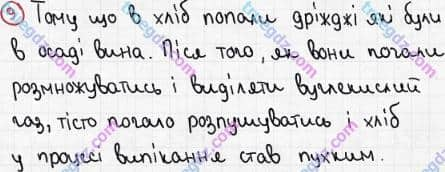 9) Тому що в хліб попали дріжджі які були
в осаді вина. Після того, як вони почали
розмножуватись і виділяти вуглекислий
газ, тісто почало розпушуватись і хліб
у процесі випікання став пухким.